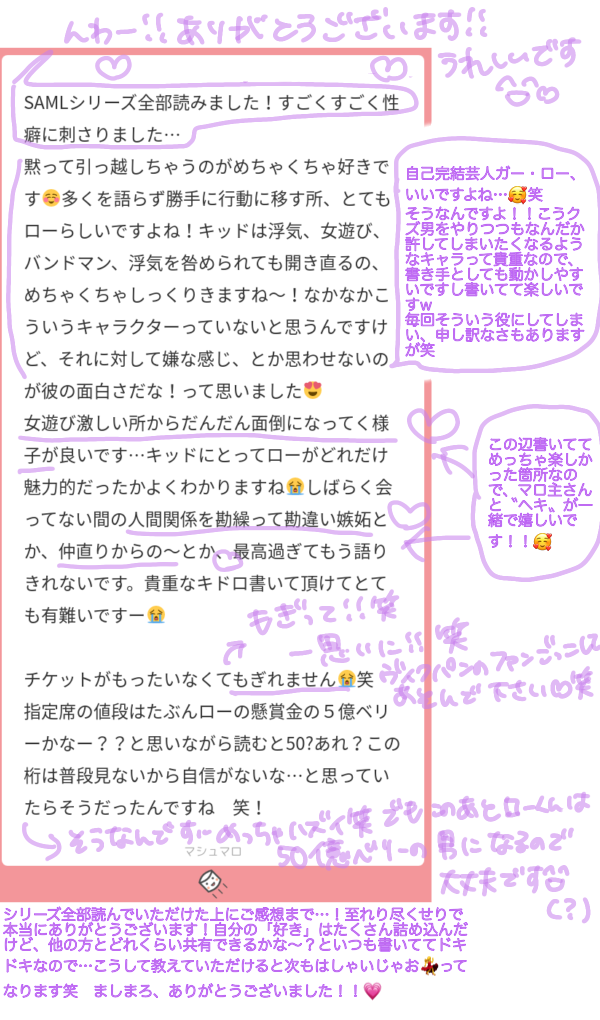 んわー!! ありがとうございます!!
うれしいです
SAMLシリーズ全部読みました！すごくすごく性
癖に刺さりました…
黙って引っ越しちゃうのがめちゃくちゃ好きで
す☺️多くを語らず勝手に行動に移す所、とても
ローらしいですよね！キッドは浮気、女遊び、
バンドマン、浮気を咎められても開き直るの、
めちゃくちゃしっくりきますね〜！なかなかこ
ういうキャラクターっていないと思うんですけ
ど、それに対して嫌な感じ、とか思わせないの
が彼の面白さだな！って思いました😍
女遊び激しい所からだんだん面倒になってく様
子が良いです…キッドにとってローがどれだけ
魅力的だったかよくわかりますね😭しばらく会
ってない間の人間関係を勘繰って勘違い嫉妬と
か、仲直りからの〜とか、最高過ぎてもう語り
きれないです。貴重なキドロ書いて頂けてとて
も有難いですー😭
チケットがもったいなくてもぎれません😭笑
指定席の値段はたぶんローの懸賞金の５億ベリ
ーかなー？？と思いながら読むと50?あれ？この
桁は普段見ないから自信がないな…と思ってい
たらそうだったんですね　笑！
マシュマロ
自己完結芸人ガー・ロー、
いいですよね…🥰笑
そうなんですよ！！こうク
ズ男をやりつつもなんだか
許してしまいたくなるよう
なキャラって貴重なので、
書き手としても動かしやす
いですし書いてて楽しいで
すw
毎回そういう役にしてしま
い、申し訳なさもあります
が笑
この辺書いてて
めっちゃ楽しか
った箇所なの
で、マロ主さん
と〝ヘキ〟が一
緒で嬉しいで
す！！🥰
もぎって!! 笑
一思いに!! 笑
ヴィクパンのファンごっこは
あそんで下さい♡笑
そうなんです… めっちゃハズイ笑 でもこのあとローくんは
50億ベリーの男になるので
大丈夫です
(?)
シリーズ全部読んでいただけた上にご感想まで…！至れり尽くせりで
本当にありがとうございます！自分の「好き」はたくさん詰め込んだ
けど、他の方とどれくらい共有できるかな〜？といつも書いててドキ
ドキなので…こうして教えていただけると次もはしゃいじゃお💃って
なります笑　ましまろ、ありがとうございました！！💗